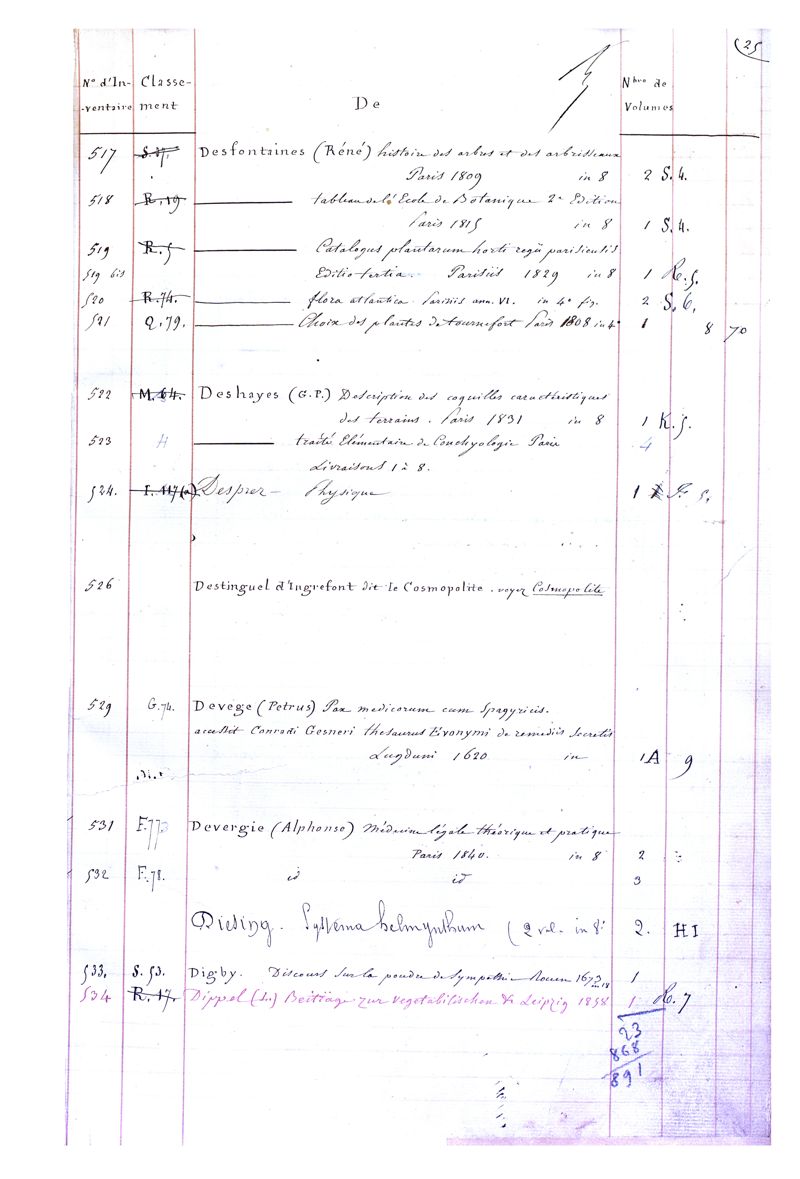 25
N° d'In- Classe- Nbre de
-ventaire ment De Volumes
517 S. 37. Desfontaines (Réné) histoire des arbres et des arbrisseaux
Paris 1809 in 8 2 S.4.
518 R.19 tableau de l'Ecole de Botanique 2e Edition
Paris 1815 in 8 1 S.4.
519 R.5 Catalogus plantarum horti regii parisiensis
519 bis Editio tertia. Parisiis 1829 in 8 1 R.5.
520 R.74. flora atlantica Parisiis ann. VI. in 4° fig. 2 S.6.
521 Q.79. Choix des plantes de tournefort Paris 1808 in 4° 1 8 70
522 M.64. Deshayes (G.P.) Description des coquilles caractéristiques
des terrains. Paris 1831 in 8 1 K.5.
523 H traité Elémentaire de Conchyologie Paris 4
Livraisons 1 à 8.
524. I.117(a) Desprez - Physique 1 F. 5.
526 Destinguel d'Ingrefont dit le Cosmopolite. voyez Cosmopolite
529 G.74. Devege (Petrus) Pax medicorum cum Spagyricis.
accessit Conradi Gesneri thesaurus Evonymi de remediis secretis
Lugduni 1620 in 1 A 9
531 F.77 Devergie (Alphonse) Médecine légale théorique et pratique
Paris 1840. in 8 2
532 F.78. id id 3
Diesing. Systema helmynthum (2 vol. in 8° 2. HI
533. S.53. Digby. Discours sur la poudre de Sympathie Rouen 1673 in 18 1
534 R.17. Dippel (Jn) Beitäge zur vegetabilischen &c Leipzig 1858 1 R.7
23
868
891